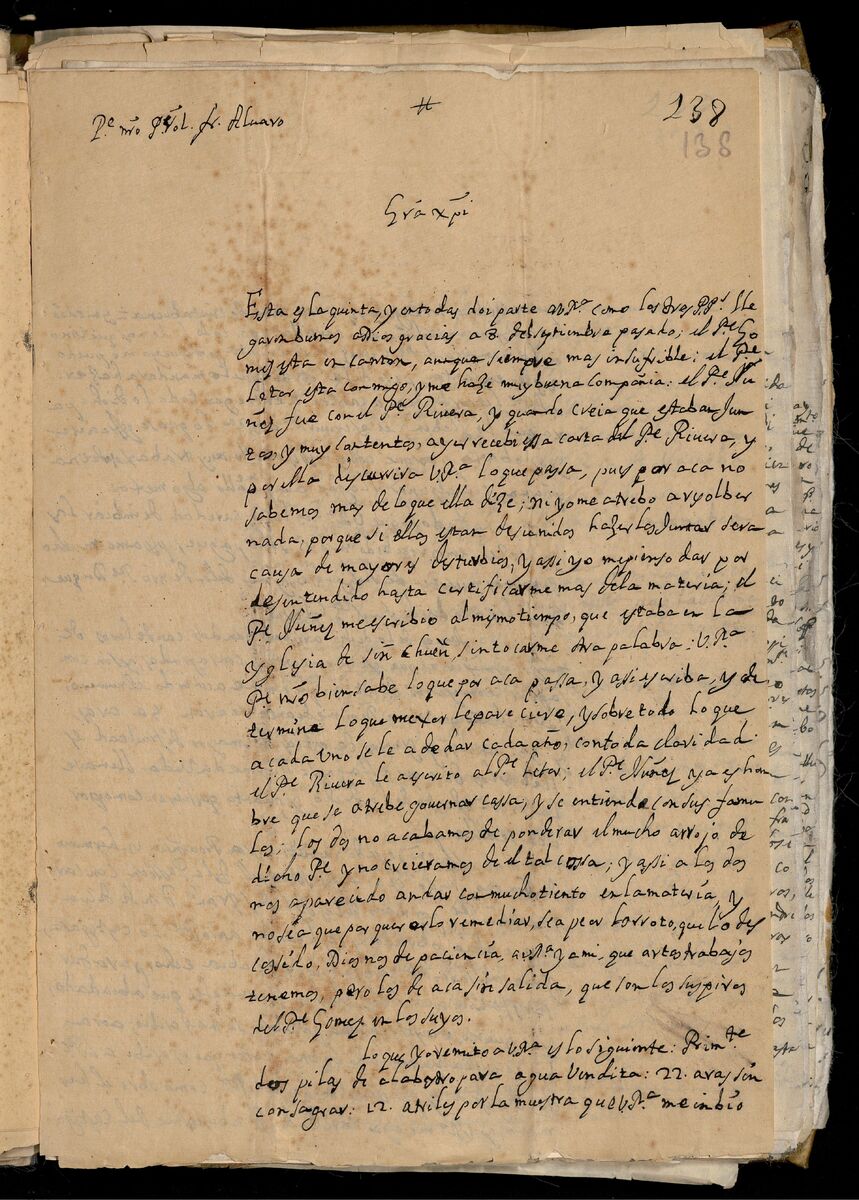 #
138
138
Pe. nr̃o Pr̃ol. fr. Alvaro
Gr̃a xp̃i
Esta es la quinta, y en todas doi parte a V Ra. como los tres P.Ps. lle
garon buenos a Dios gracias a 3. de septiembre pasado; el Pe. Go
mes esta en canton, aunque siempre mas insufrible: el Pe.
Letor esta conmigo, y me haze muy buena compañia: el Pe. Nu
ñez fue con el Pe. Rivera, y quando creia que estaban Jun
tos, y muy contentos, ayer recebi essa carta del Pe. Rivera, y
por ella discurrira V Ra. lo que passa, pues por aca no
sabemos mas de lo que ella dize; ni yo me atrebo a resolber
nada, porque si ellos estan desunidos hazerlos Juntar sera
causa de mayores disturbios, y assi yo me pienso dar por
desentendido hasta certificarme mas de la materia; el
Pe. Nuñez me escribio al mismo tiempo, que estaba en la
yglesia de sin chueñ, sin tocarme otra palabra: V. Ra.
Pe. nr̃o bien sabe lo que por aca passa, y assi escriba, y de
termine lo que mexor le pareciere, y sobre todo lo que
a cada uno se le a de dar cada año, con toda claridad
el Pe. Rivera le a escrito al Pe. Letor; el Pe. Nuñez ya es hom
bre que se atrebe governar cassa, y se entiende con sus famu
los; los dos no acabamos de ponderar el mucho arrojo de
dicho Pe. y no creieramos de el tal cossa; y assi a los dos
nos a parecido andar con mucho tiento en la materia, y
no sea que por quererlo remediar, sea peor lo rroto, que lo des
cossido, Dios nos de paciencia, a V Ra. y a mi, que artos trabajos
tenemos, pero los de aca sin salida, que son los suspiros
del Pe. Gomez en los suyos.
lo que yo remito a V Ra. es lo siguiente: Primte.
dos pilas de alabastro para agua vendita: 22. aras sin
consagrar: 12. atriles por la muestra que V. Ra. me inbio